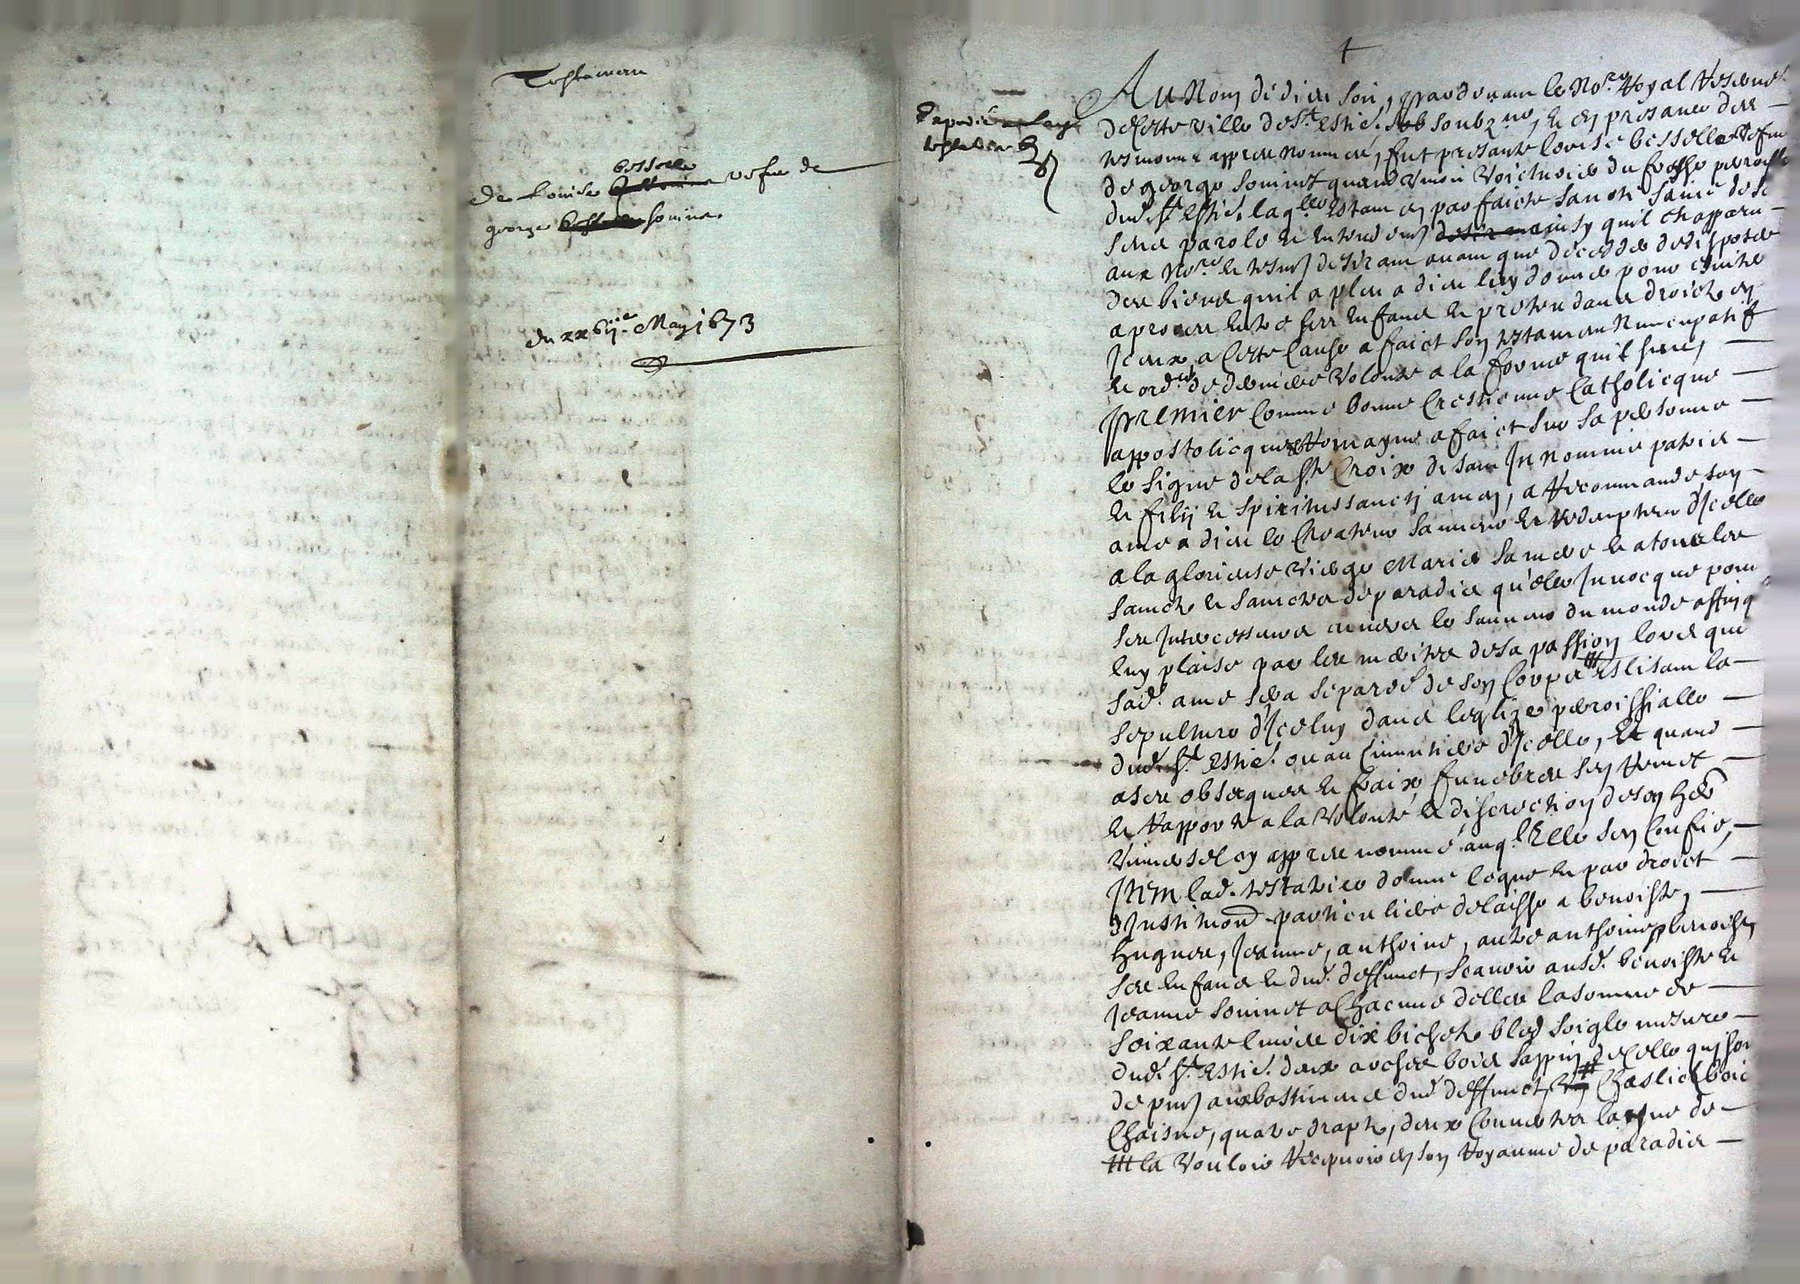 Testament
de Louise bessolle vefve de
george souvinet
du xxbije May 1673
Expedié
Au Nom de dieu soit, Pardevant le Nore Royal Reservé
de cette ville de St Estie. soubzne, et en presance des
tesmoins appres nommés, fut presante louise bessolle vefve
de george souvinet quand vivoit voicturier du parroisse
dud. St Estie. laqlle estant en parfaicte santé saine de ses
sens parole et entendemt ainsy quil est apparu
aux Nore et tesmoins desirant avant que decedder de disposer
des biens quil a pleu a dieu luy donner pour esvitter
a proces entre ses enfans et pretendans droicts en
Iceux a cette cause a faict son testament Nuncupatif
et ordce de derniere volonté a la forme quil suit,
Premier comme bonne Crestienne Catholicque
appostolicque Romayne a faict sur sa personne
le signe de la Ste Croix disant In Nomine patris
et filij et spiritus sancti amen, a Recommandé son
ame a dieu le Createur sauveur et redempteur d'Icelle
a la glorieuse Vierge Marie sa mere et a tous les
saincts et sainctes de paradis qu'elle Invocque pour
ses Intercesseurs envers le sauveur du monde affin q
luy plaise par les merites de sa passion lors que
sad. ame sera separée de son corps Eslisant la
sepulture d'Iceluy dans l'eglize parroissialle
dud. St Estie. ou au Cimmetiere d'Icelle, Et quand
a ses obseques et fraix funebres s'en Remet
et Rapporte a la volonté et discrection de son her
univerSel cy appres nommé auql Elle s'en confie,
Item lad. testatrice donne legue et par droict
d'Institution particuliere delaisse a benoiste,
hugues, Jeanne, anthoine, autre anthoine
ses enfans et dud. deffunct, scavoir ausd. benoiste et
Jeanne Souvinet a Chacune d'elles la somme de
soixante livres dix bichets bled soigle mesure
dud. St Estie. deux arches bois sappin de celles qui sont
aux bastimens dud. deffunct Chaslict bois
Chaisne, quatre draps, deux couvertes laine de
la vouloir Recepvoir en son Royaume de paradis